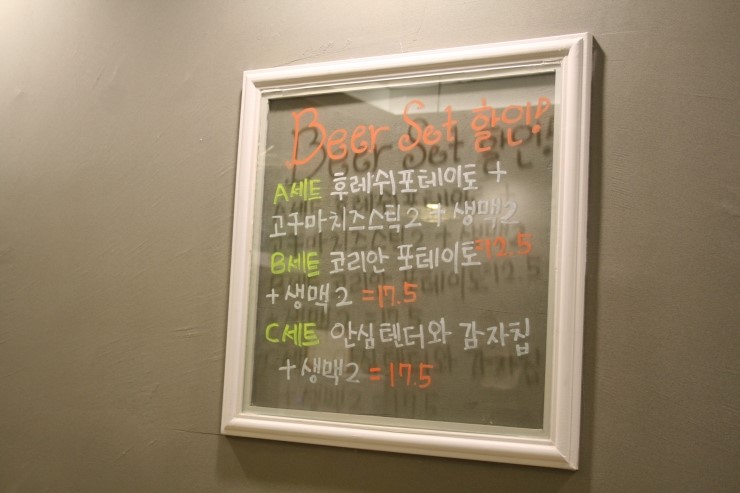 Beer Set 할인!
A세트 후레쉬포테이토 +
고구마치즈스틱2 + 생맥2
=12.5
B세트 코리안 포테이토
+ 생맥2 =17.5
C세트 안심텐더와 감자칩
+ 생맥2 =17.5